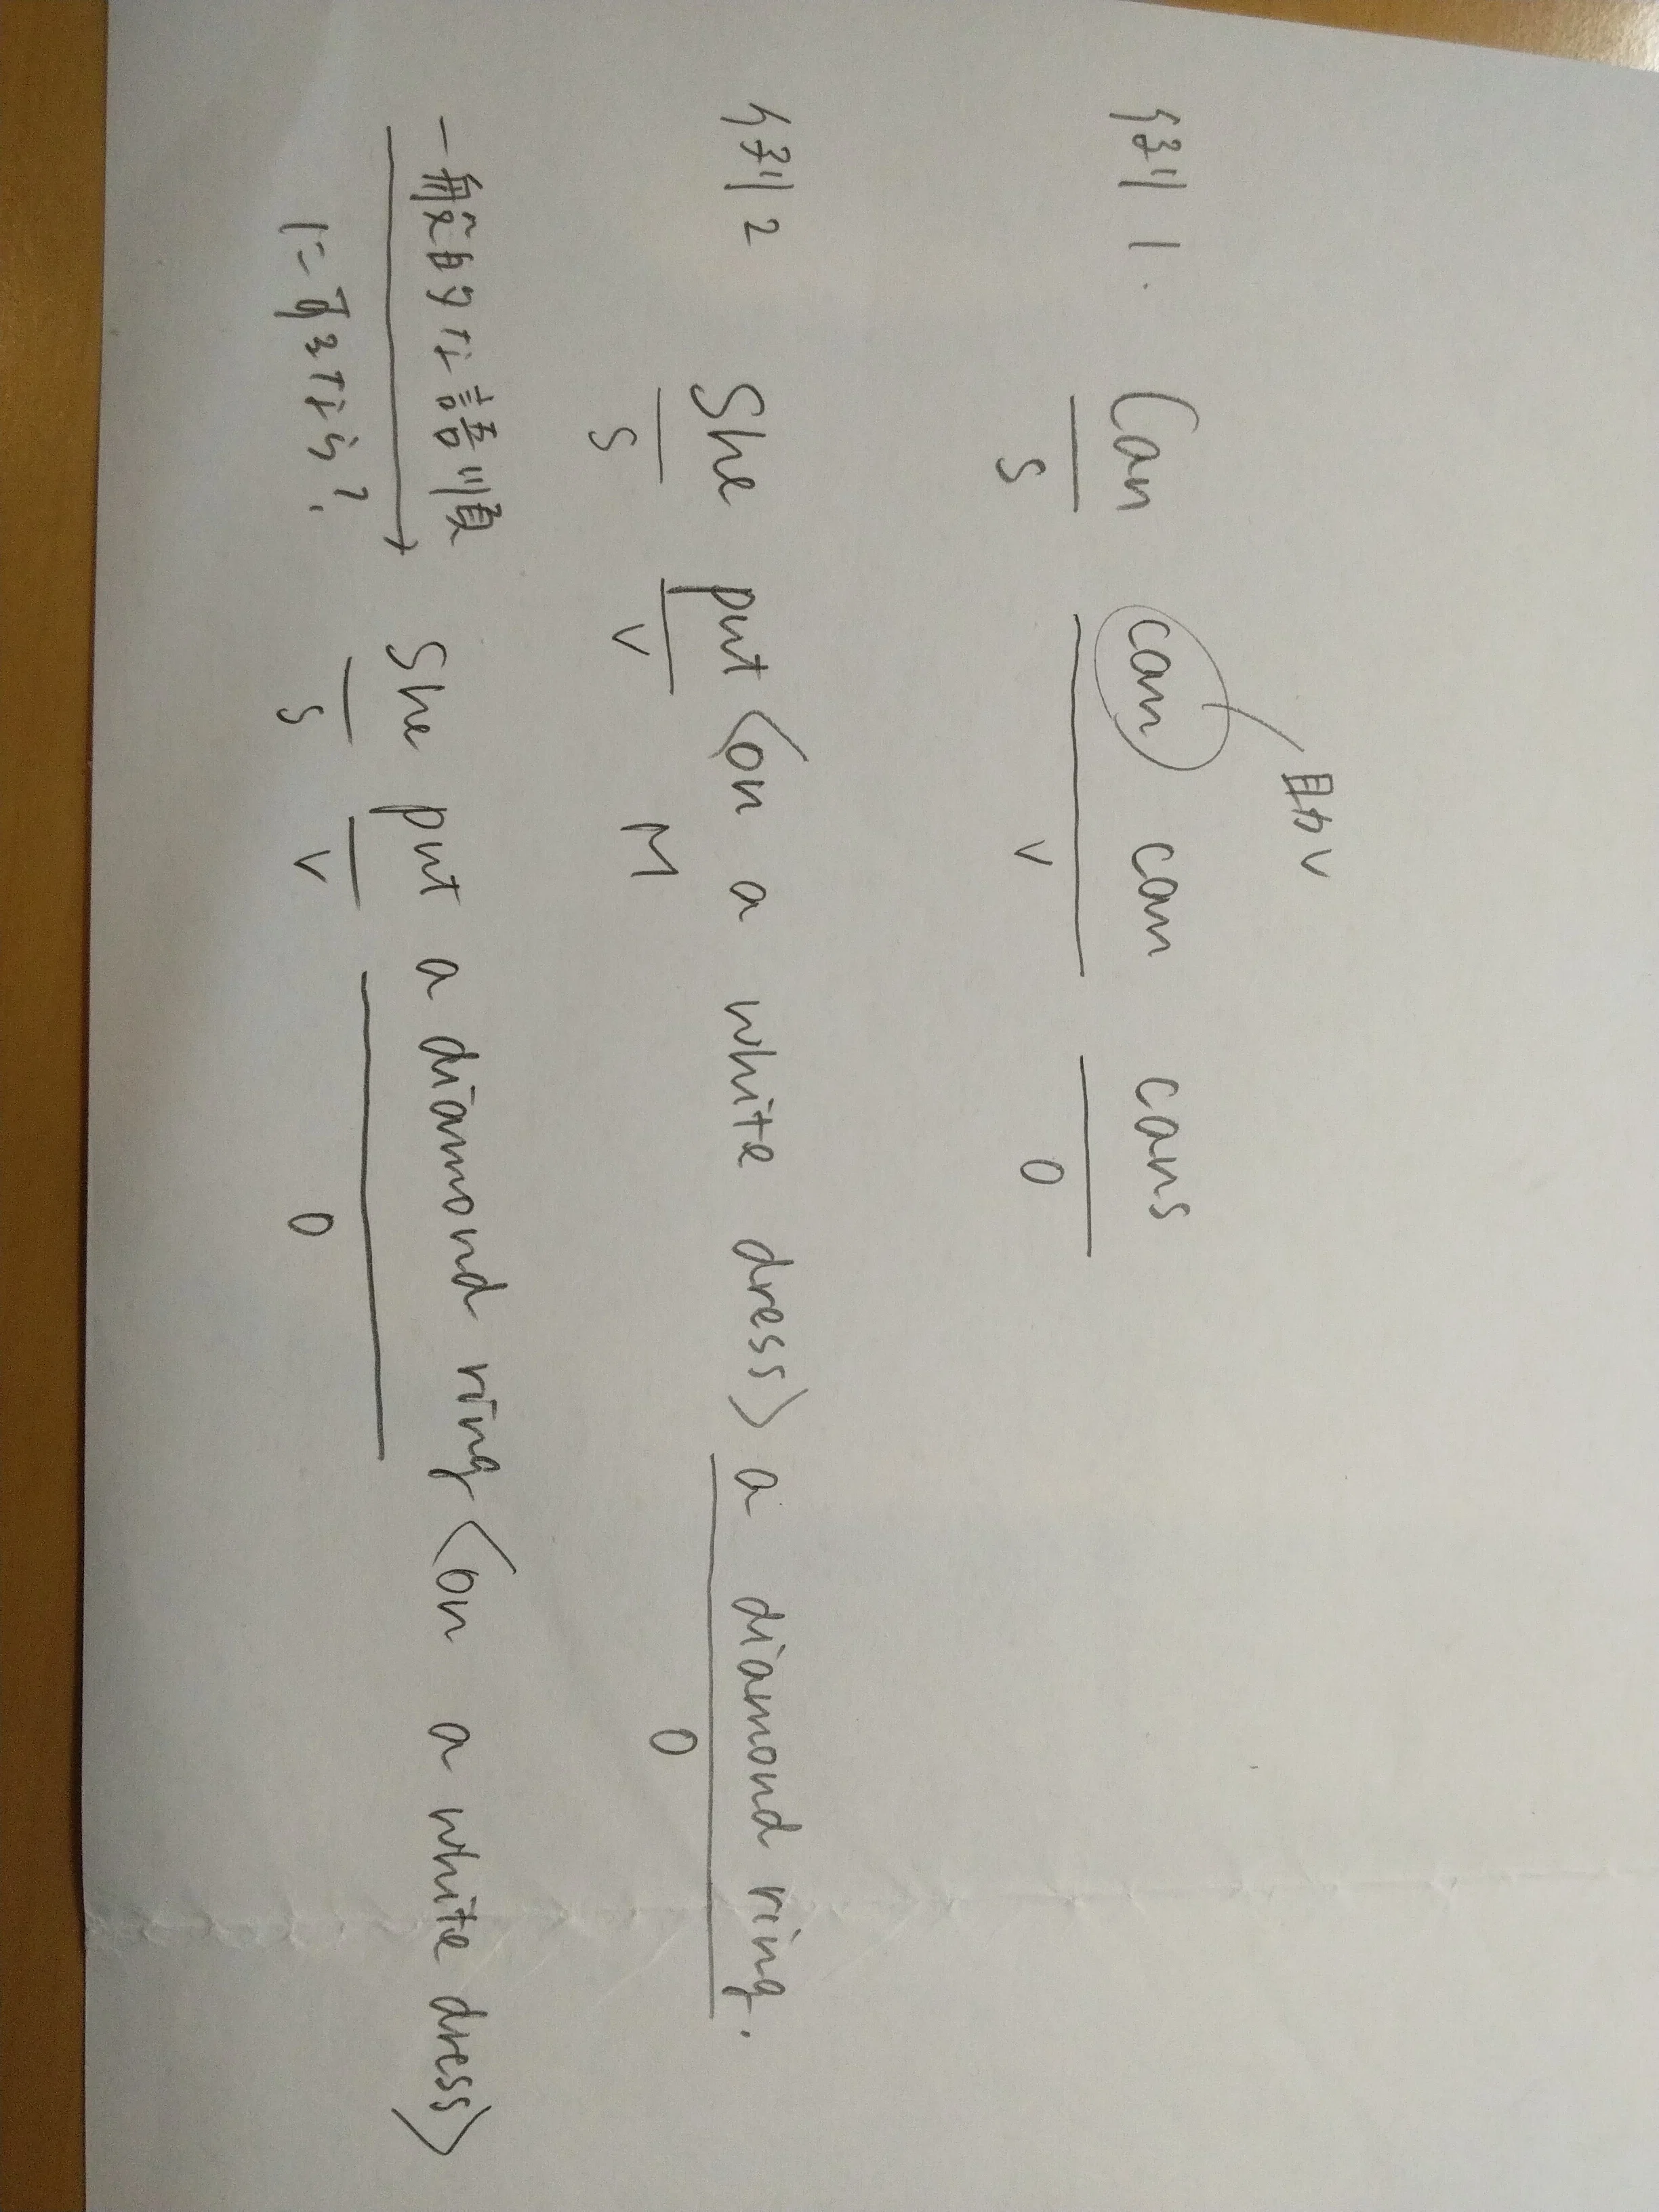 助V
例1. Can can can cans
S V O
例2 She put〈on a white dress〉a diamond ring.
S V M O
一般的な語順 She put a diamond ring〈on a white dress〉
に直すなら? S V O